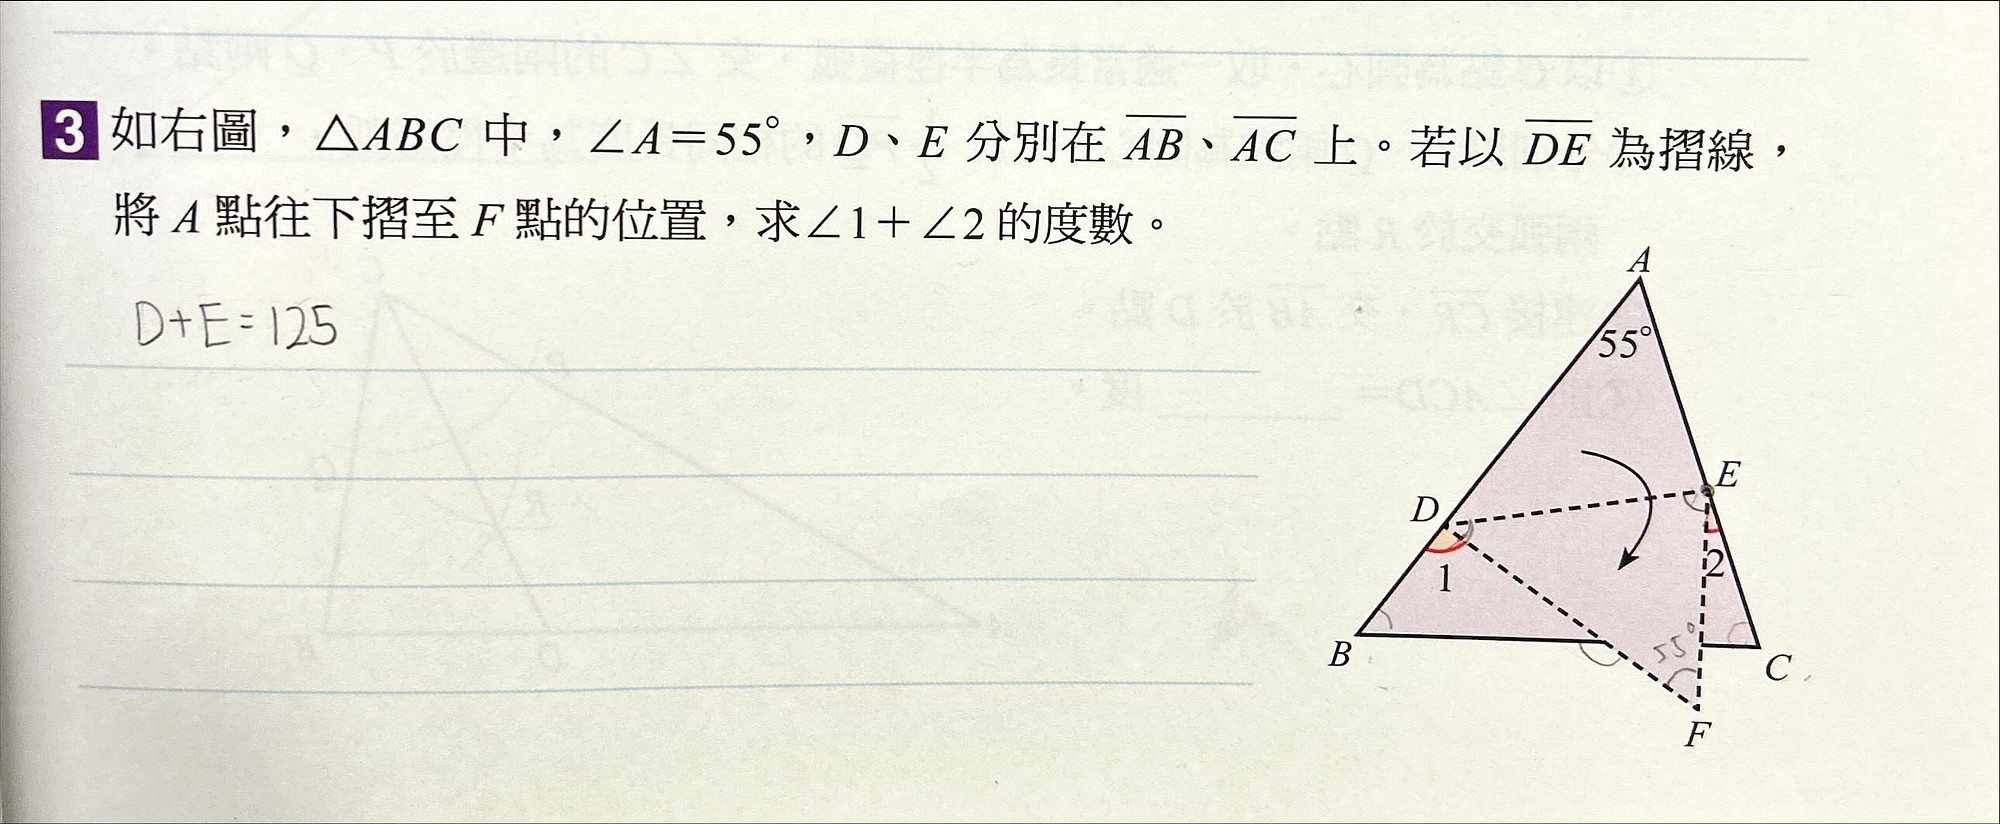 3 如右圖，△ABC 中，∠A＝55°，D、E 分別在 AB、AC 上。若以 DE 為摺線，
將 A 點往下摺至 F 點的位置，求∠1＋∠2 的度數。
D+E=125
A
55°
E
D
2
1
B
55°
C
F